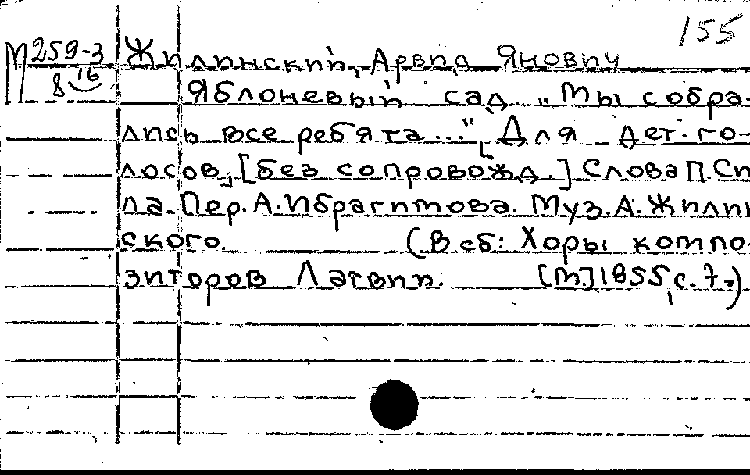 155
М 259-3 Жилинский, Арвид Янович
8 16 Яблоневый сад. „Мы собра-
лись все ребята...", Для дет. го-
лосов, [без сопровожд.] Слова П. Си-
ла. Пер. А. Ибрагимова. Муз. А. Жилин
ского. (В сб: Хоры компо-
зиторов Латвии. [М] 1955, с. 7.)